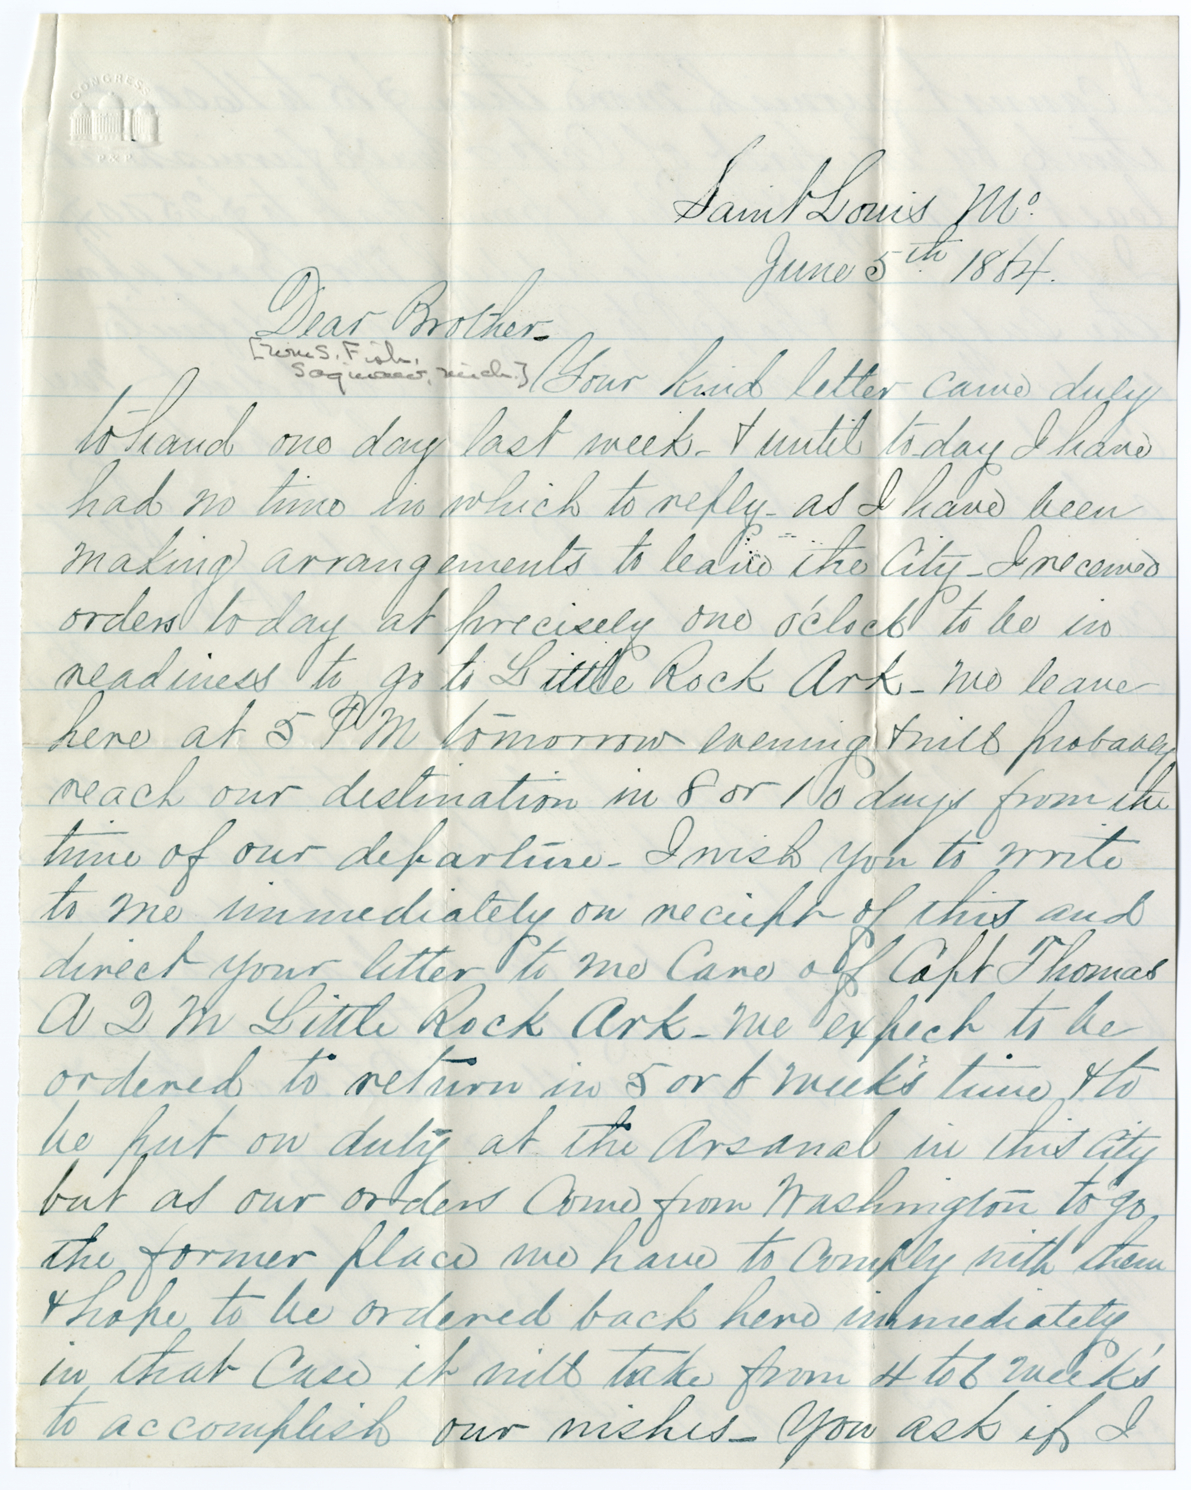 CONGRESS
P & P
Saint Louis Mo.
June 5th 1864.
Dear Brother-
[Wm S. Fish,
Saginaw, Mich.]
Your kind letter came duly
to hand one day last week- & until to-day I have
had no time in which to reply- as I have been
making arrangements to leave the City- I received
orders to day at precisely one o'clock to be in
readiness to go to Little Rock Ark- we leave
here at 5 P M tomorrow evening & will probably
reach our destination in 8 or 10 days from the
time of our departure- I wish you to write
to me immediately on reciept of this and
direct your letter to me Care of Capt Thomas
A Q M Little Rock Ark- We expect to be
ordered to return in 5 or 6 week's time & to
be put on duty at the Arsanal in this City
but as our orders Come from Washington to go
the former place we have to Comply with them
& hope to be ordered back here immediately
in that Case it will take from 4 to 6 week's
to accomplish our wishes- You ask if I